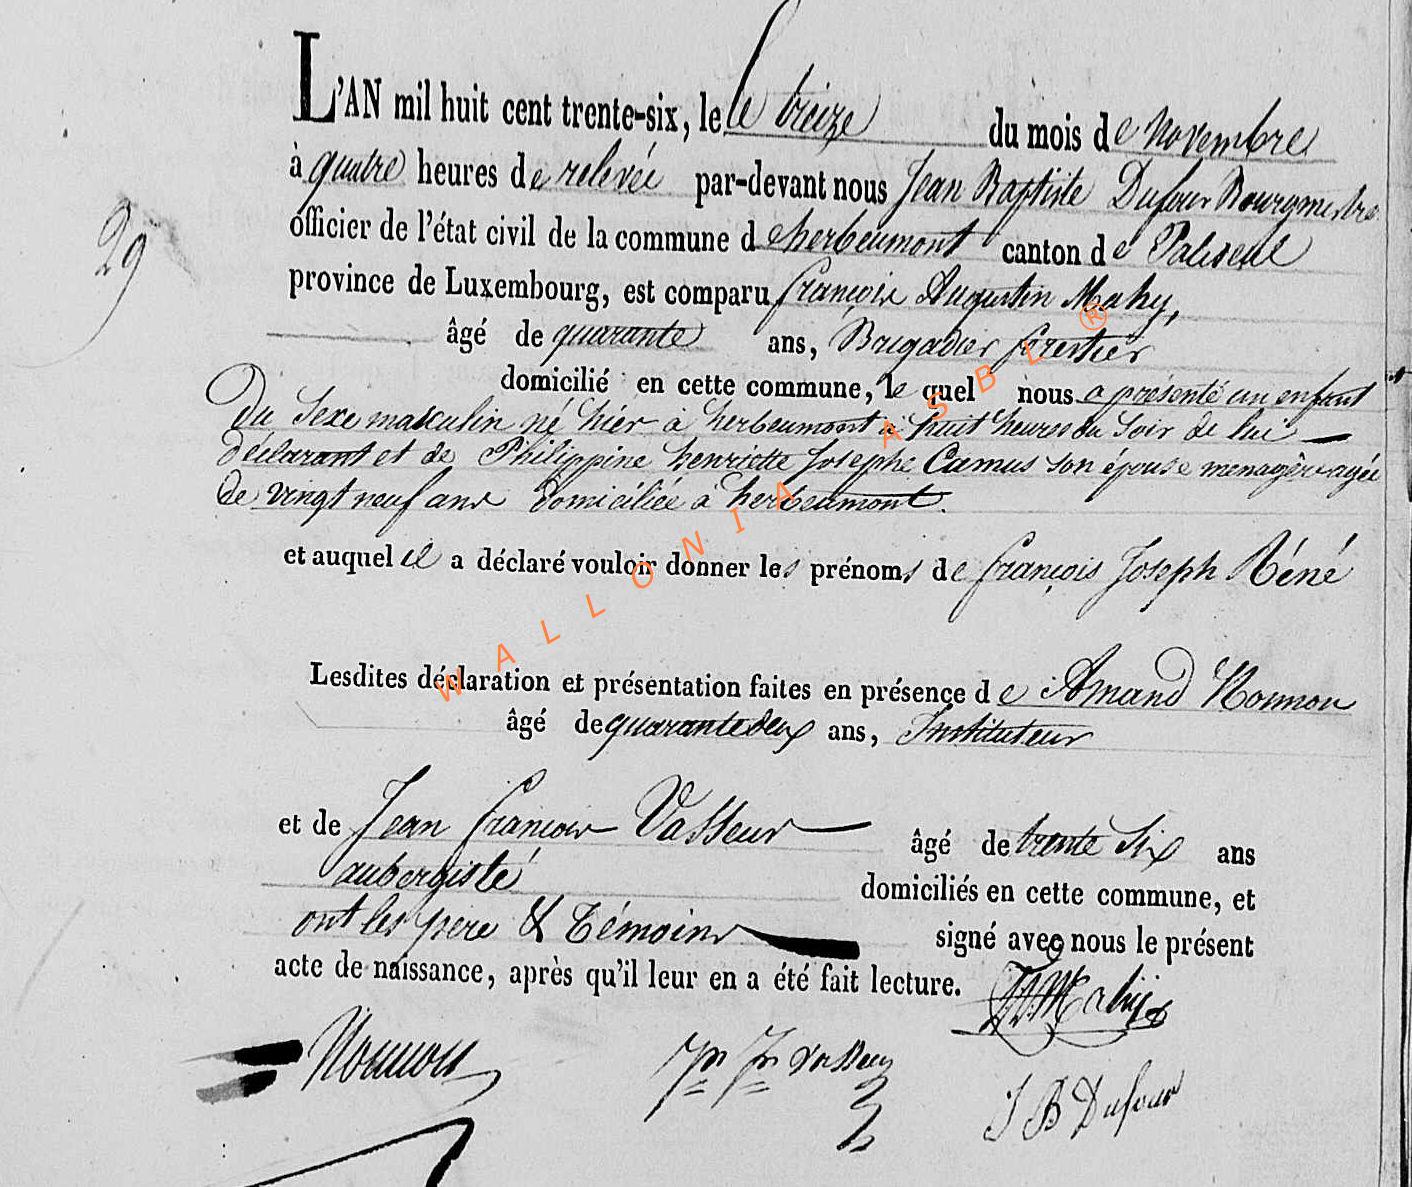 L'AN mil huit cent trente-six, le le treize du mois de Novembre
à quatre heures de relevée par-devant nous Jean Baptiste Dufour Bourgmestre
officier de l'état civil de la commune d'herbeumont canton de Paliseul
29
province de Luxembourg, est comparu françois Augustin Mahy,
âgé de quarante ans, Brigadier forestier
domicilié en cette commune, le quel nous a présenté un enfant
Du Sexe masculin né hièr à herbeumont à huit heures du Soir de lui
déclarant et de Philippine henriette Josephe Camus son épouse menagère agée
de vingt neuf ans domiciliée à herbeumont.
et auquel il a déclaré vouloir donner les prénoms de françois Joseph Réné
Lesdites déclaration et présentation faites en présence de Amand Nonnon
âgé de quarante deux ans, Instituteur
et de Jean françois Vasseur âgé de trente Six ans
aubergiste domiciliés en cette commune, et
ont les père & Témoins signé avec nous le présent
acte de naissance, après qu'il leur en a été fait lecture.
Mahy
Nonnon Jn Fs Vasseur
J B Dufour
WALLONIA ASBL ®